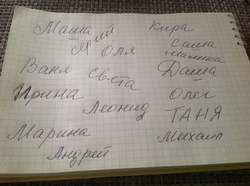 Маша Кира
Юрий
Оля Саша
Ваня Света Даша
Ирина Олег
Леонид ТАНЯ
Марина Михаил
Андрей